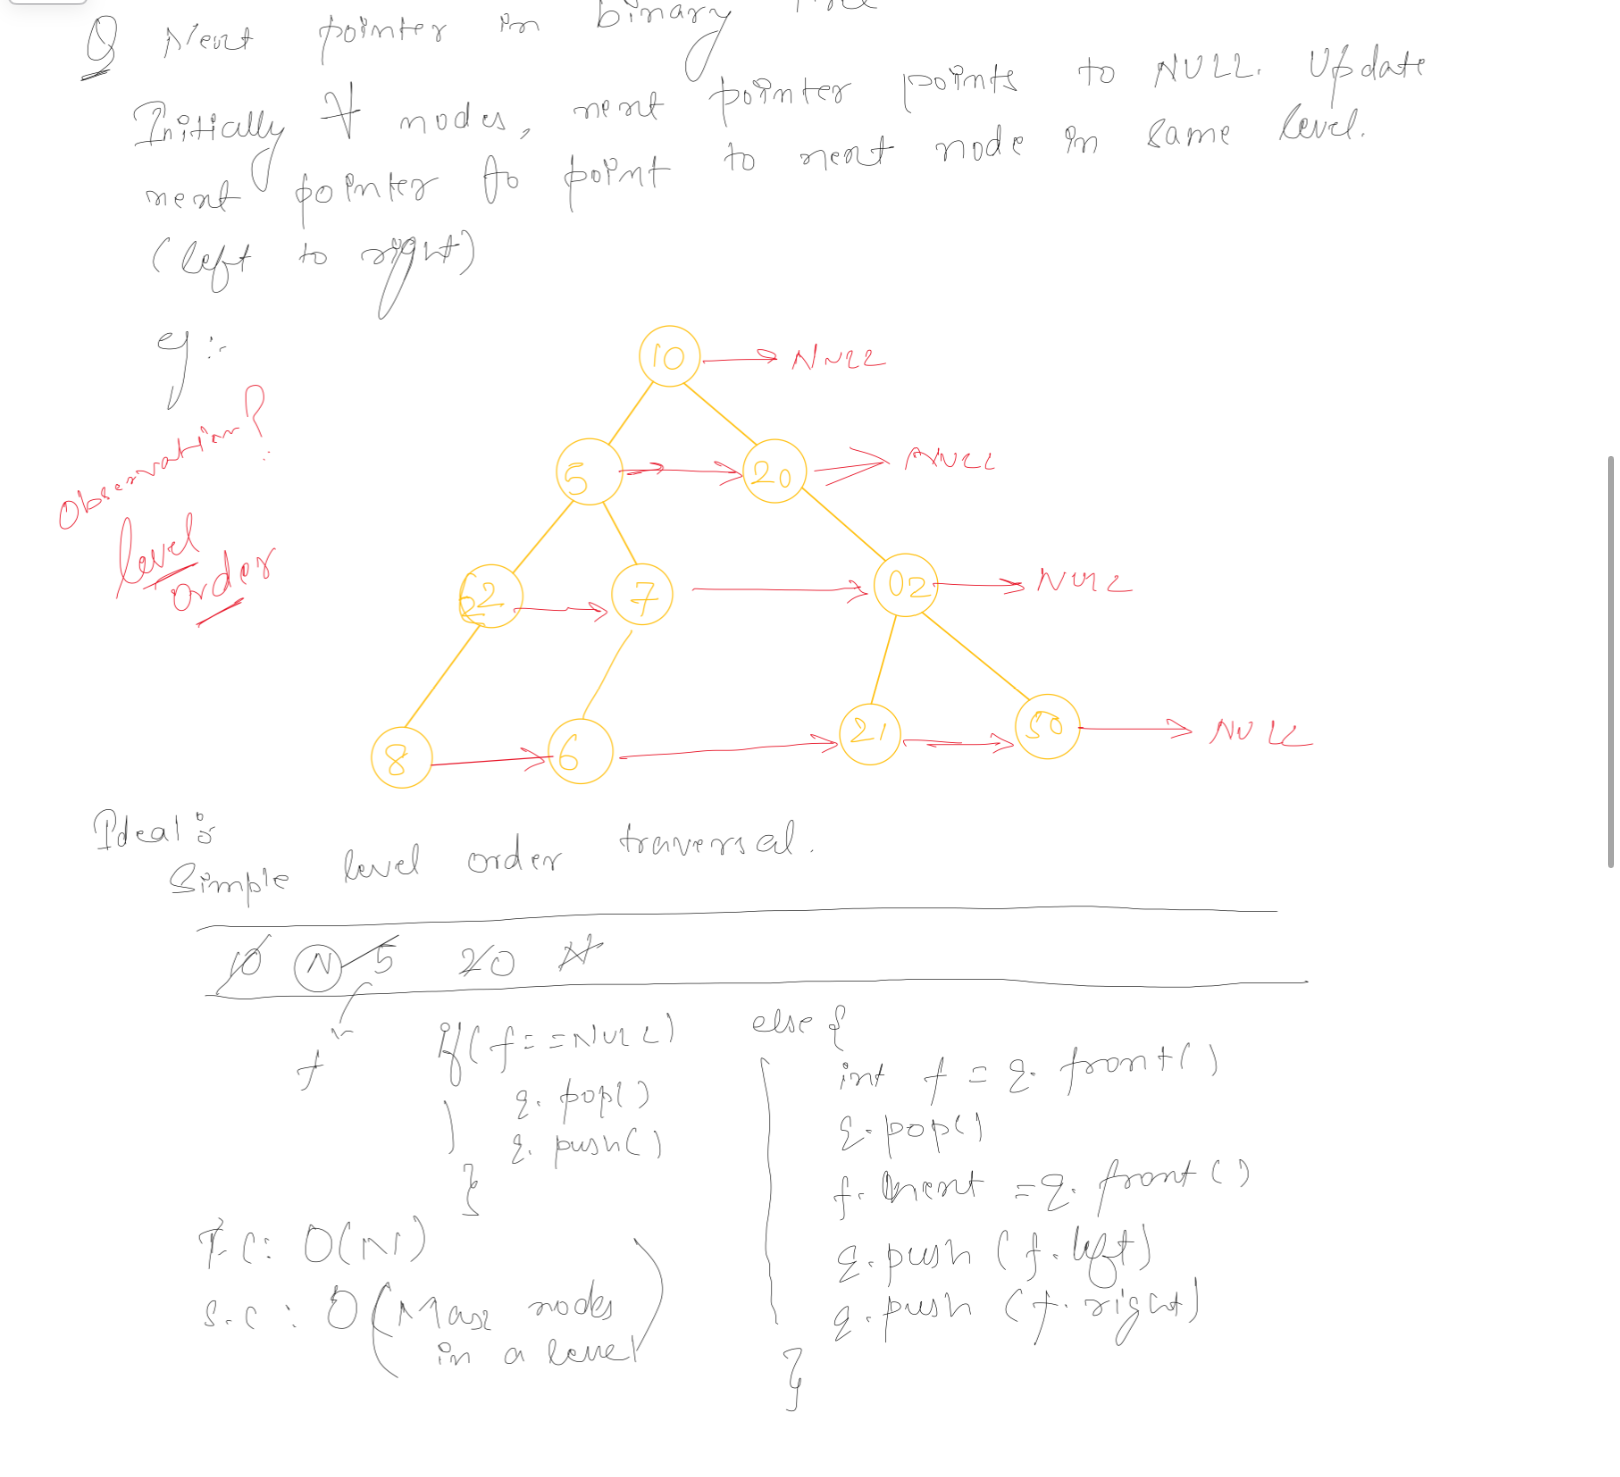 Q Next pointer in binary tree
Initially ∀ nodes, next pointer points to NULL. Update
next pointer to point to next node in same level.
(left to right)
eg:-
10 → NULL
Observation?
5 → 20 → NULL
level
order
62 → 7 → 02 → NULL
8 → 6 → 21 → 50 → NULL
Idea1:
Simple level order traversal.
10 N 5 20 N
f
if(f==NULL)
q.pop()
q.push()
}
else {
int f = q.front()
q.pop()
f.next = q.front()
q.push (f.left)
q.push (f.right)
}
T.C: O(N)
S.C: O(Max nodes
in a level)